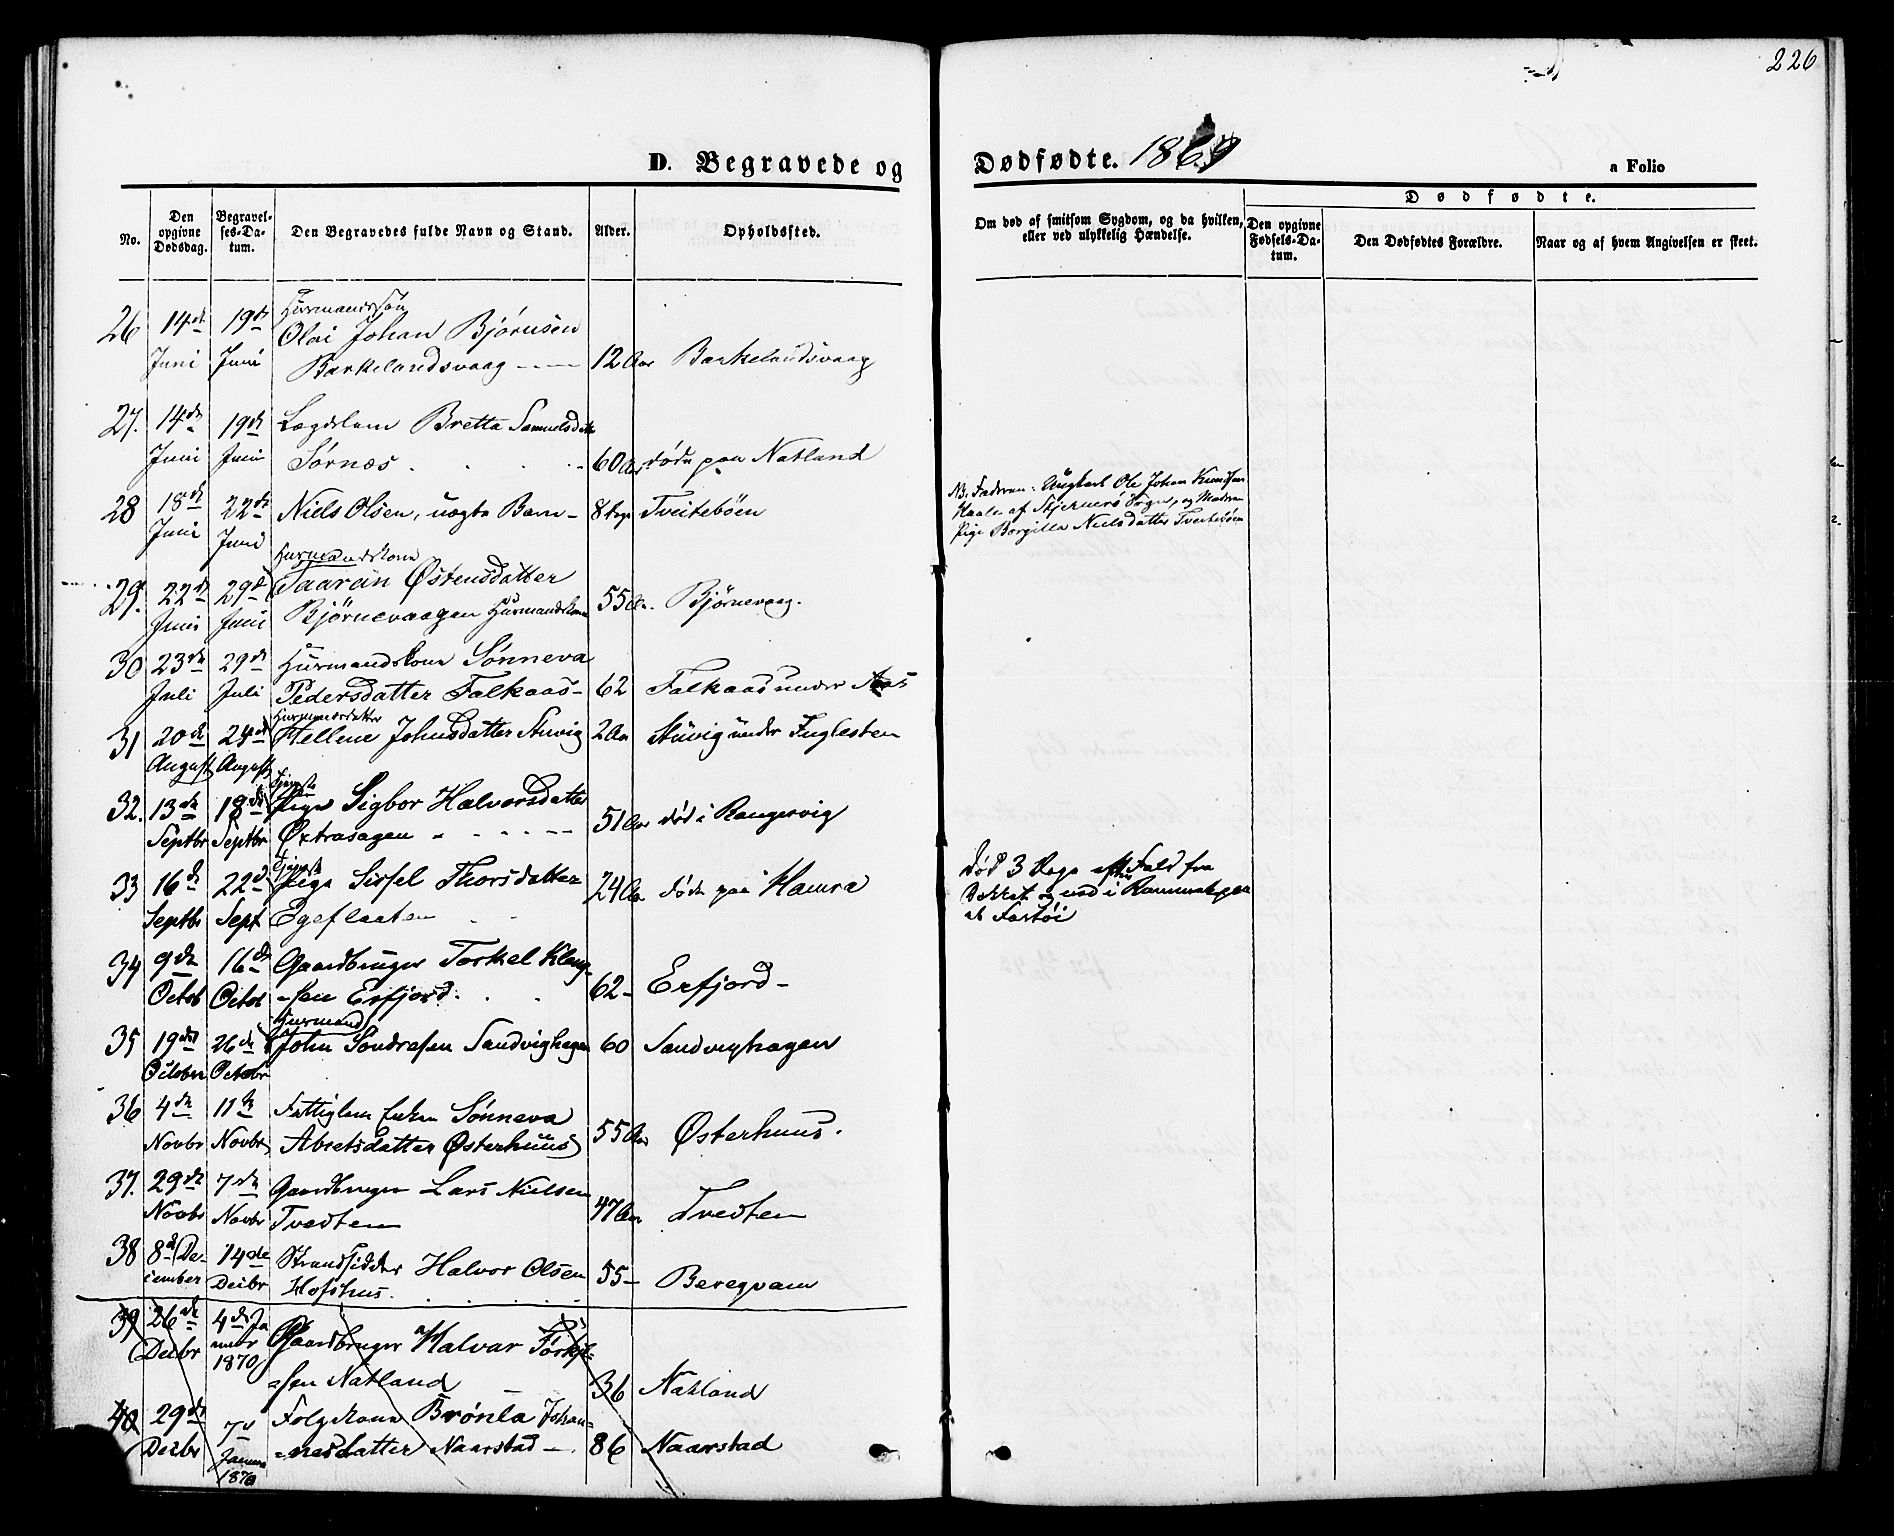 226
D. Begravede og Dødfødte. 1869
a Folio
No.
Den opgivne Dødsdag.
Begravelses-Datum.
Den Begravedes fulde Navn og Stand.
Alder.
Opholdssted.
Om død af smitsom Sygdom, og da hvilken, eller ved ulykkelig Hændelse.
Dødfødte.
Den opgivne Fødsels-Datum.
Den Dødfødtes Forældre.
Naar og af hvem Angivelsen er skeet.
Huusmandssøn
26 14de 19de Olai Johan Bjørnsen
Juni Juni Barkelandsvaag 12 Aar Barkelandsvaag
27. 14de 19de Lægdslem Bretta Samuelsdatter
Juni Juni Sørnæs 60 Aar døde paa Natland
28 18de 22de Niels Olsen, uægte Barn 8 Tveitebøen
Juni Juni
NB. Faderen: Ungkarl Ole Johan Knudsen
af Stjernerø Sogn, og Moderen
Pige Borgilla Nielsdatter Tveitebøen
Huusmandskone
29. 22de 29de Taaran Østensdatter
Juni Juni Bjørnevaagen Huusmandskone 55 Aar. Bjørnevaag.
30 23de 29de Huusmandskone Sønneva
Juli Juli Pedersdatter Falkaas 62 Falkaas under Aas
Huusmandsdatter
31 20de 24de Hellene Johnsdatter Stuvig 2 Aar Stuvig under Fuglesten
August August
Tjeneste
32. 13de 18de Pige Sigbor Halvorsdatter
Septbr Septbr Øxtrasagen 51 Aar død i Rangesvig
Tjeneste
33 16de 22de Pige Sissel Thorsdatter 24 Aar døde paa Hamra
Septbr Sept Egeflaaten
Død 3 Dage efter Fald fra
Dækket og ned i
at Fartøi
34 9de 16de Gaardbruger Torkel Kleng-
Octob Octob sen Erfjord. 62 Erfjord
Huusmand
35 19de 26de John Sondresen Sandvighagen 60 Sandvighagen
October Octobr
36 4de 11te Fattiglem Enken Sønneva
Novbr Novbr Abretsdatter Østerhuus 55 Aar Østerhuus.
37. 29de 7de Gaardbruger Lars Nielsen
Novbr Novbr Tvedten 47 Aar Tvedten
38 8de De- 14de Strandsidder Halvor Olsen
cember Decbr Hofshus. 55 Beregvam
39 26de 4de Ja Gaardbruger Halvar Torkjel-
Decbr nuar 1870 sen Natland 36 Natland
40 29de 7de Folgekone Brønla Johan-
Decbr Januar 1870 nesdatter Naarstad 86 Naarstad